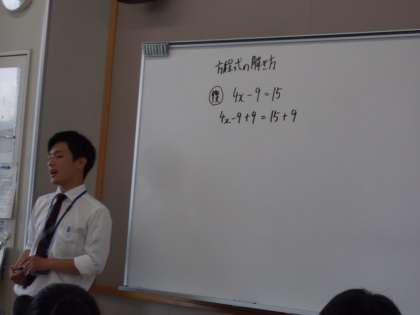 方程式の解き方
例 4x - 9 = 15
4x - 9 + 9 = 15 + 9